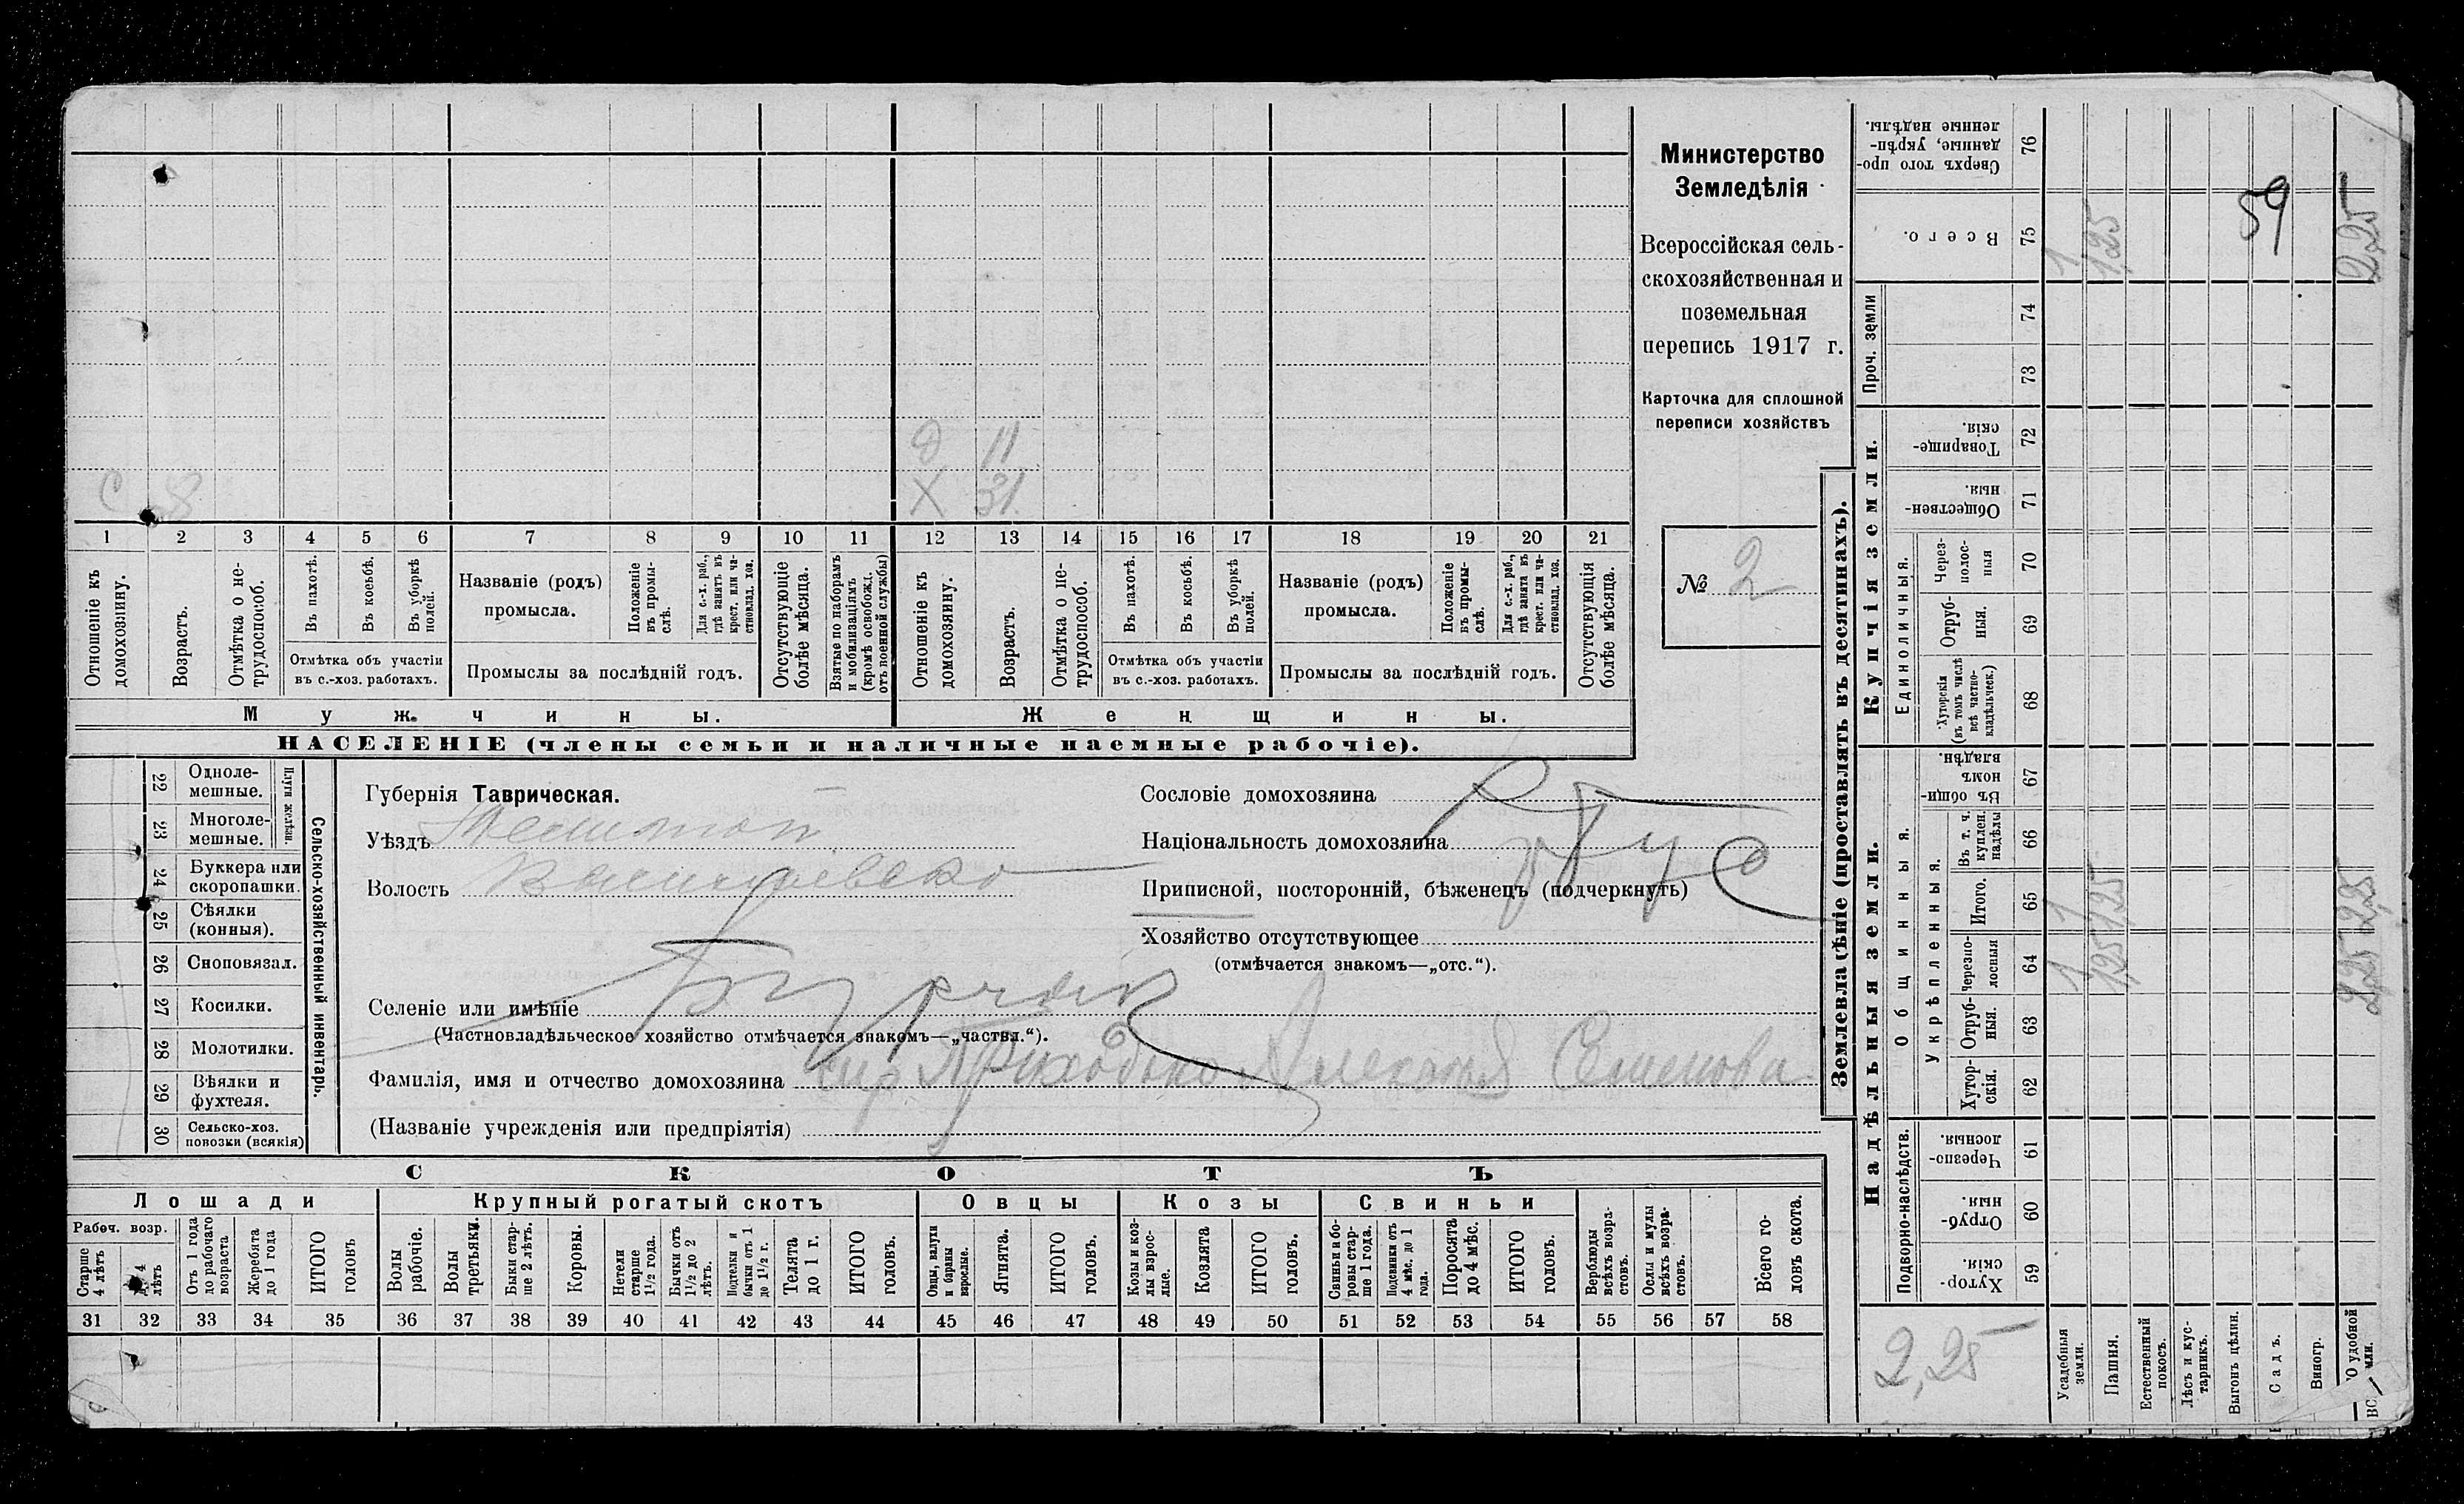 Д 11
С 8 Х 31
1 2 3 4 5 6 7 8 9 10 11 12 13 14 15 16 17 18 19 20 21
Отношеніе къ домохозяину.
Возрастъ.
Отмѣтка о не-трудоспособ.
Въ пахотѣ.
Въ косьбѣ.
Въ уборкѣ полей.
Отмѣтка объ участіи въ с.-хоз. работахъ.
Названіе (родъ) промысла.
Положеніе въ промы-слѣ.
Для с.-х. раб., гдѣ занятъ въ крест. или ча-стновлад. хоз.
Промыслы за послѣдній годъ.
Отсутствующіе болѣе мѣсяца.
Взятые по наборамъ и мобилизаціямъ (кромѣ освобожд. отъ военной службы)
Отношеніе къ домохозяину.
Возрастъ.
Отмѣтка о не-трудоспособ.
Въ пахотѣ.
Въ косьбѣ.
Въ уборкѣ полей.
Отмѣтка объ участіи въ с.-хоз. работахъ.
Названіе (родъ) промысла.
Положеніе въ промы-слѣ.
Для с.-х. раб., гдѣ занята въ крест. или ча-стновлад. хоз.
Промыслы за послѣдній годъ.
Отсутствующія болѣе мѣсяца.
Мужчины. Женщины.
НАСЕЛЕНІЕ (члены семьи и наличные наемные рабочіе).
Министерство
Земледѣлія
Всероссійская сель-
скохозяйственная и
поземельная
перепись 1917 г.
Карточка для сплошной
переписи хозяйствъ
№ 2
Сельско-хозяйственный инвентарь.
Плуги желѣзн.
22 Одноле-мешные.
23 Многоле-мешные.
24 Буккера или скоропашки.
25 Сѣялки (конныя).
26 Сноповязал.
27 Косилки.
28 Молотилки.
29 Вѣялки и фухтеля.
30 Сельско-хоз. повозки (всякія)
Губернія Таврическая.
Уѣздъ
Волость
Селеніе или имѣніе
(Частновладѣльческое хозяйство отмѣчается знакомъ—„частвл.“).
Фамилія, имя и отчество домохозяина Приходько Семенова
(Названіе учрежденія или предпріятія)
Сословіе домохозяина
Національность домохозяина
Приписной, посторонній, бѣженецъ (подчеркнуть)
Хозяйство отсутствующее
(отмѣчается знакомъ—„отс.“).
СКОТЪ
Лошади Крупный рогатый скотъ Овцы Козы Свиньи
Рабоч. возр.
Старше 4 лѣтъ
4 лѣтъ
Отъ 1 года до рабочаго возраста
Жеребята до 1 года
ИТОГО головъ
Волы рабочіе.
Волы третьяки.
Быки стар-ше 2 лѣтъ.
Коровы.
Нетели старше 1½ года.
Бычки отъ 1½ до 2 лѣтъ.
Подтелки и бычки отъ 1 до 1½ г.
Телята до 1 г.
ИТОГО головъ.
Овцы, валухи и бараны взрослые.
Ягнята.
ИТОГО головъ.
Козы и коз-лы взрос-лые.
Козлята
ИТОГО головъ.
Свиньи и бо-ровы стар-ше 1 года.
Подсвинки отъ 4 мѣс. до 1 года.
Поросята до 4 мѣс.
ИТОГО головъ.
Верблюды всѣхъ возра-стовъ.
Ослы и мулы всѣхъ возра-стовъ.
Всего го-ловъ скота.
31 32 33 34 35 36 37 38 39 40 41 42 43 44 45 46 47 48 49 50 51 52 53 54 55 56 57 58
Землевладѣніе (проставлять въ десятинахъ).
Надѣльныя земли.
Подворно-наслѣдств.
Хутор-скія. 59
Отруб-ныя. 60
Черезпо-лосныя. 61
Общинныя.
Укрѣпленныя.
Хутор-скія. 62
Отруб-ныя. 63
Черезпо-лосныя 64 1 1,25 2,25
Итого. 65 1 1,25 2,25
Въ т. ч. куплен. надѣлы 66
Въ общин-номъ владѣн. 67
Купчія земли.
Единоличныя.
Хуторскія (въ томъ числѣ всѣ частно-владѣльческ.) 68
Отруб-ныя. 69
Через-полос-ныя 70
Обществен-ныя. 71
Товарище-скія. 72
Проч. земли
73
74
Всего. 75 1 1,25 2,25
Сверхъ того про-данные, укрѣп-ленные надѣлы. 76
59
2,25
Усадебныя земли.
Пашня.
Естественный покосъ.
Лѣсъ и кус-тарникъ.
Выгонъ цѣлин.
Садъ.
Виногр.
удобной